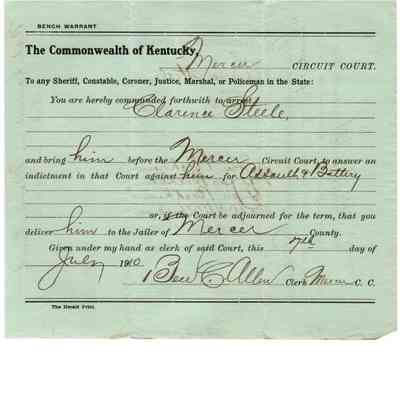 BENCH WARRANT
The Commonwealth of Kentucky,
Mercer CIRCUIT COURT.
To any Sheriff, Constable, Coroner, Justice, Marshal, or Policeman in the State:
You are hereby commanded forthwith to arrest
Clarence Steele,
and bring him before the Mercer Circuit Court, to answer an
indictment in that Court against him for Assault & Battery
or, if the Court be adjourned for the term, that you
deliver him to the Jailer of Mercer County.
Given under my hand as clerk of said Court, this 7th day of
July 1910 Ben C. Allen Clerk Mercer C. C.
The Herald Print.